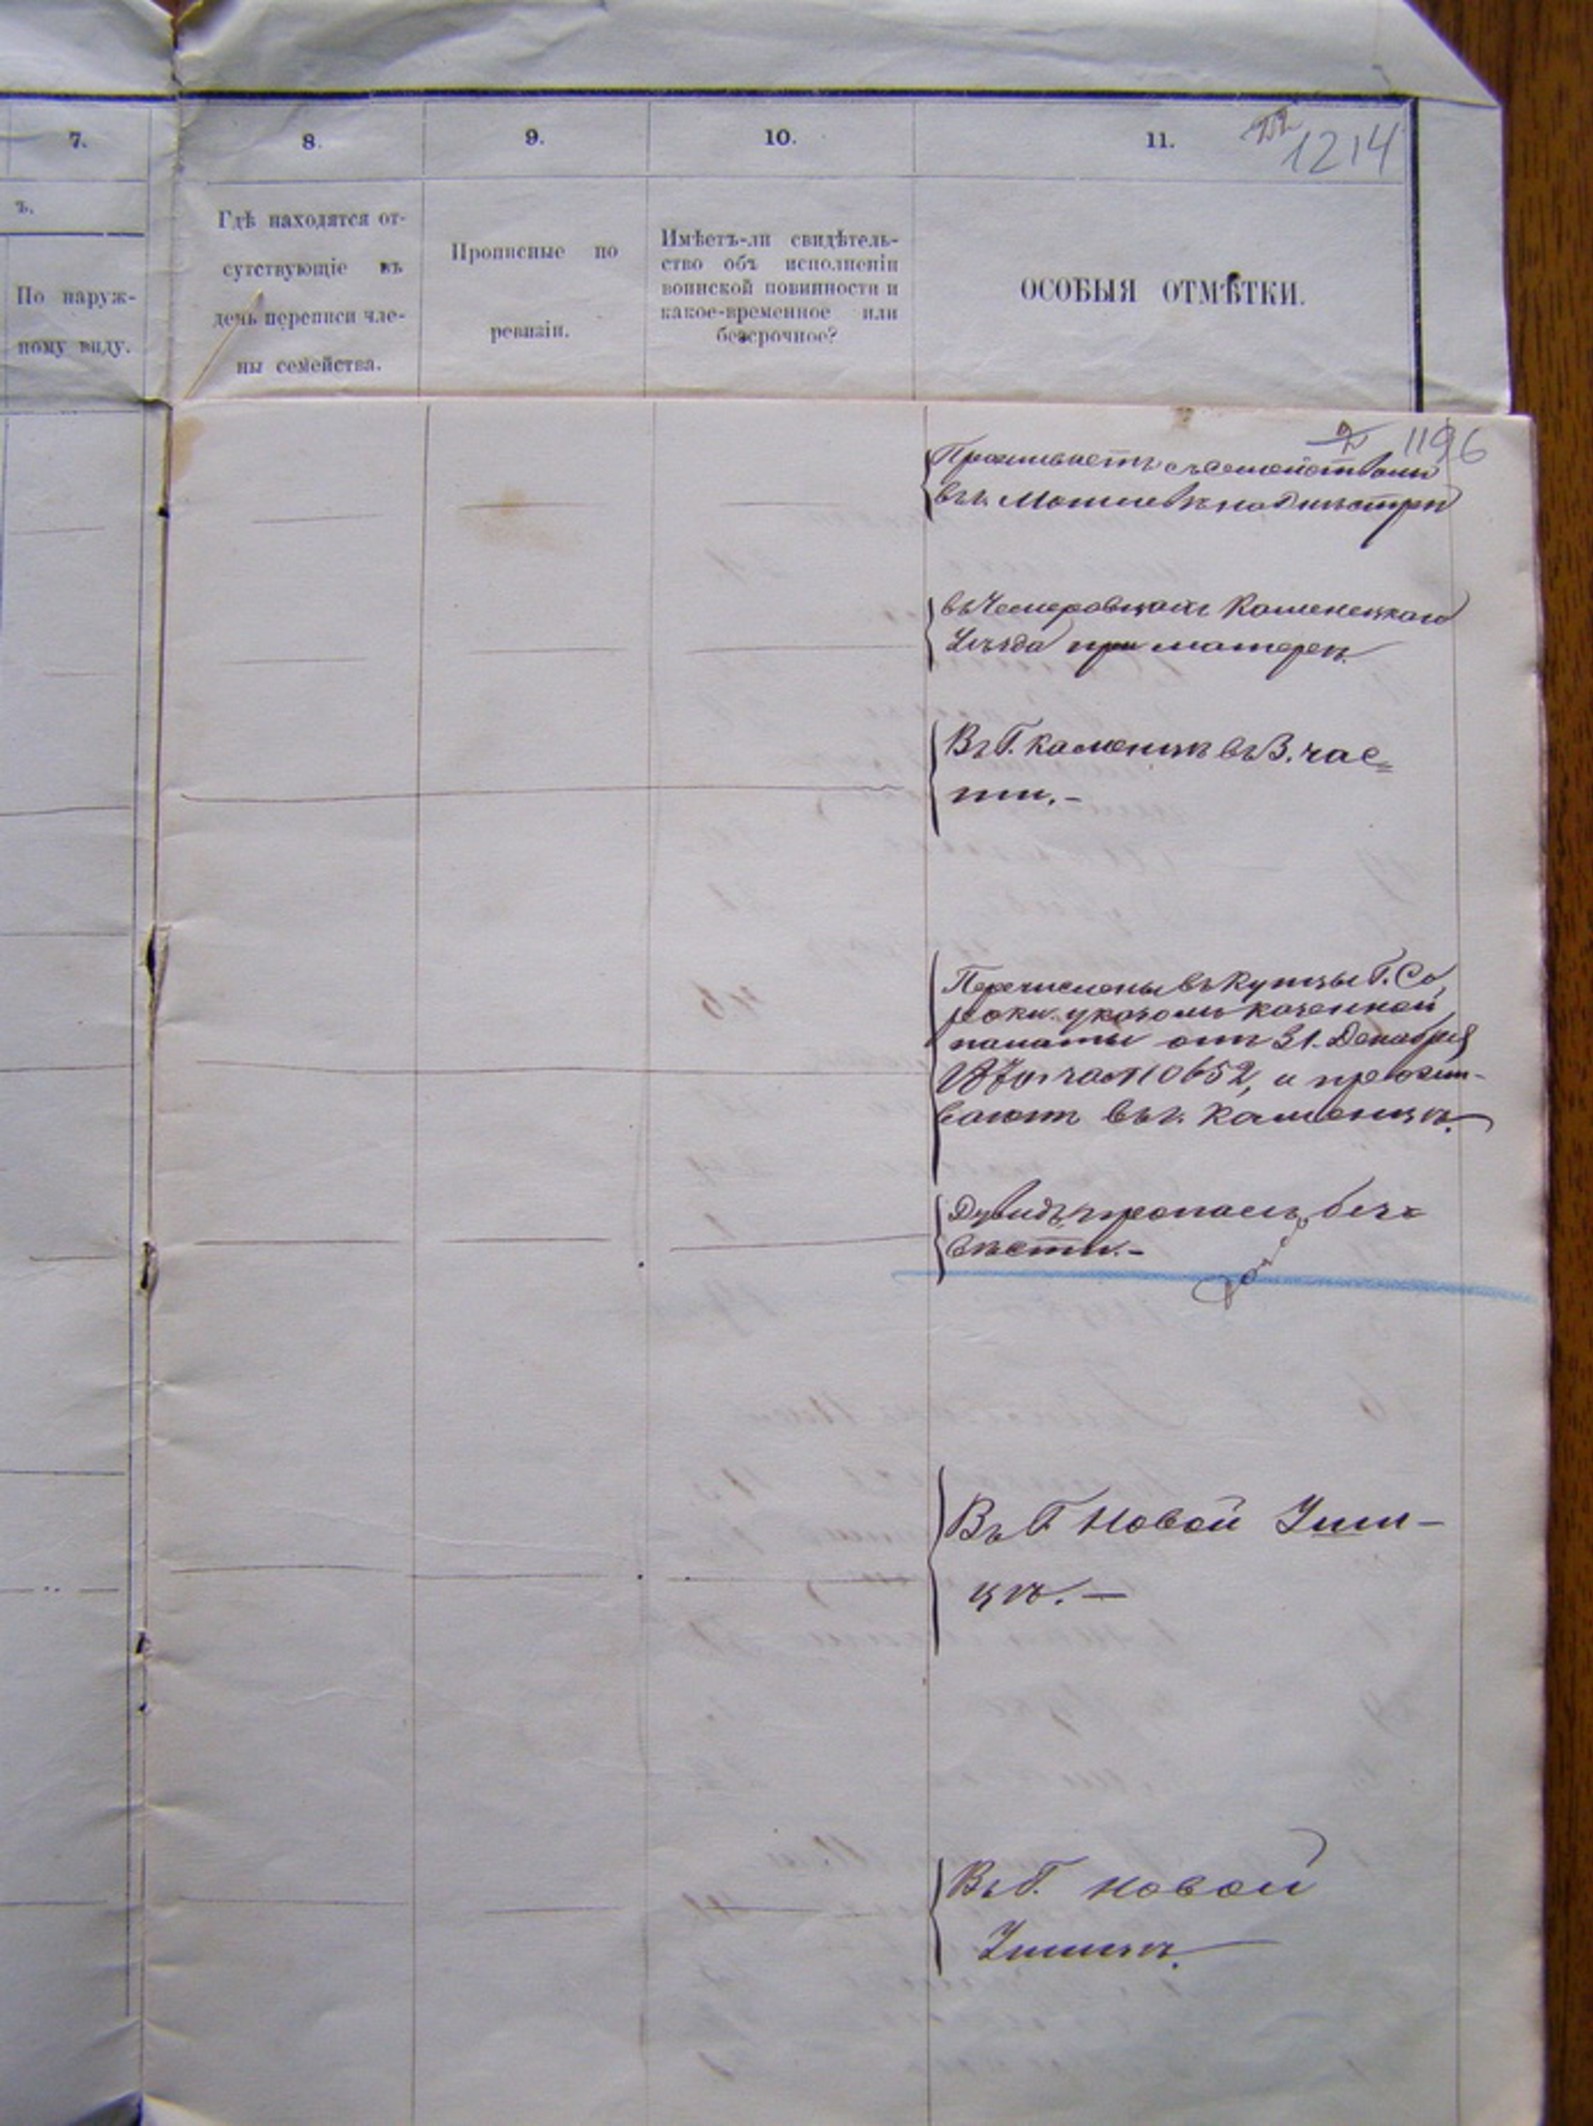 7.
8.
9.
10.
11.
1214
ъ.
По наруж-
ному виду.
Гдѣ находятся от-
сутствующіе въ
день переписи чле-
ны семейства.
Прописные по
ревизіи.
Имѣетъ-ли свидѣтель-
ство объ исполненіи
воинской повинности и
какое-временное или
безсрочное?
ОСОБЫЯ ОТМѢТКИ.
1196
Проживаетъ съ семействомъ
въ г. Могилевѣ на Днѣстрѣ
въ Чемеровцахъ Каменецкаго
Уѣзда при матерѣ.
Въ Г. Каменцѣ въ 3. час=
ти.-
Перечислены въ купцы Г. Со
роки указомъ казенной
палаты отъ 31. Декабря
10652, и прожи-
ваютъ въ г. Каменцѣ.
Дувидъ, пропалъ безъ
вѣсти.-
Въ Г. Новой Уши-
цѣ.-
Въ Г. Новой
Ушицѣ.